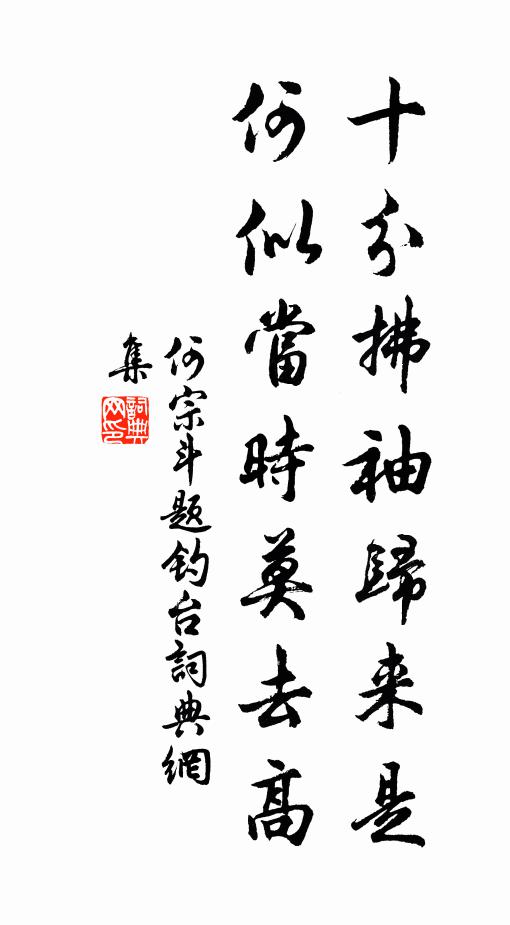 十分拂袖歸来是
何似當時莫去高
何宗斗题钓台詞典網
集
詞典网印